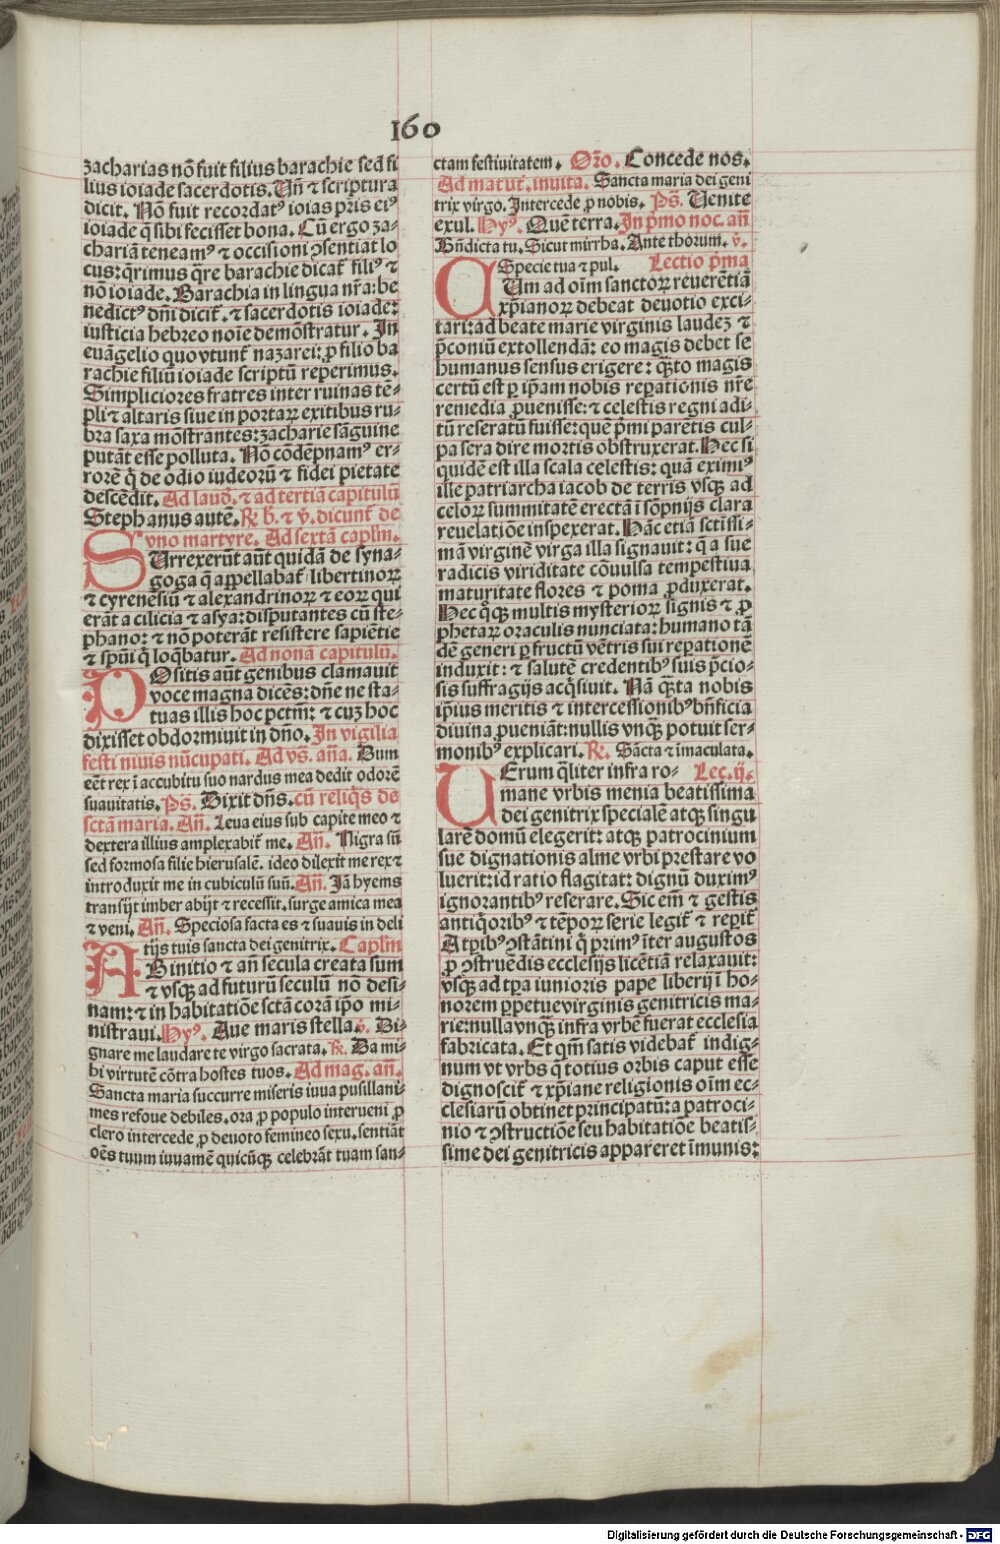 160
zacharias nō fuit filius barachie sed fi
lius ioiade sacerdotis. Uñ ⁊ scriptura
dicit. Nō fuit recordatꝰ ioias pris eiꝰ
ioiade q̄ sibi fecisset bona. Cū ergo za-
chariā teneamꝰ ⁊ occisioni ꝯsentiat lo
cus: q̄rimus q̄re barachie dicat᷑ filiꝰ ⁊
nō ioiade. Barachia in lingua nr̄a: be
nedictꝰ dñi dicit᷑. ⁊ sacerdotis ioiade:
iusticia hebreo noīe demōstratur. In
euāgelio quo vtunt᷑ nazarei: ꝓ filio ba
rachie filiū ioiade scriptū reperimus.
Simpliciores fratres inter ruinas tē-
pli ⁊ altaris siue in portaꝝ exitibus ru-
bra saxa mōstrantes: zacharie sāguine
putāt esse polluta. Nō cōdēpnamꝰ er-
rorē q̄ de odio iudeorū ⁊ fidei pietate
descēdit. Ad laud̄. ⁊ ad tertiā capitulū
Stephanus autē. ℟ b. ⁊ ℣. dicunt᷑ de
vno martyre. Ad sextā caplm̄.
SUrrexerūt aūt quidā de syna-
goga q̄ appellabat᷑ libertinoꝝ
⁊ cyrenēsiū ⁊ alexandrinoꝝ ⁊ eoꝝ qui
erāt a cilicia ⁊ asya: disputantes cū ste-
phano: ⁊ nō poterāt resistere sapiētie
⁊ spūi q̄ loq̄batur. Ad nonā capitulū.
POsitis aūt genibus clamauit
voce magna dicēs: dñe ne sta-
tuas illis hoc pctm̄: ⁊ cuz hoc
dixisset obdormiuit in dño. In vigilia
festi niuis nūcupati. Ad vs̄. aña. Dum
eēt rex ī accubitu suo nardus mea dedit odorē
suauitatis. Ps̄. Dixit dñs. cū reliq̄s de
sctā maria. Añ. Leua eius sub capite meo ⁊
dextera illius amplexabit᷑ me. Añ. Nigra sū
sed formosa filie hierusalē. ideo dilexit me rex ⁊
introduxit me in cubiculū suū. Añ. Jā hyems
transijt imber abijt ⁊ recessit. surge amica mea
⁊ veni. Añ. Speciosa facta es ⁊ suauis in deli
tijs tuis sancta dei genitrix. Caplm̄
AB initio ⁊ añ secula creata sum
⁊ vsq̄ ad futurū seculū nō desi-
nam: ⁊ in habitatiōe sctā corā ip̄o mi-
nistraui. Hyꝰ. Aue maris stella. ℣. Di-
gnare me laudare te virgo sacrata. ℟. Da mi-
hi virtutē cōtra hostes tuos. Ad mag. añ.
Sancta maria succurre miseris iuua pusillani-
mes refoue debiles. ora ꝓ populo interueni ꝓ
clero intercede ꝓ deuoto femineo sexu. sentiāt
oēs tuum iuuamē quicūqꝫ celebrāt tuam san-
ctam festiuitatem. Or̄o. Concede nos.
Ad matut᷑. inuita. Sancta maria dei geni
trix virgo. Intercede ꝓ nobis. Ps̄. Uenite
exul. Hyꝰ. Quē terra. In p̄mo noc. añ
Bn̄dicta tu. Sicut mirrha. Ante thorum. ℣.
Specie tua ⁊ pul. Lectio p̄ma
CUm ad oīm sanctoꝝ reuerētiā
xp̄ianoꝝ debeat deuotio exci-
tari: ad beate marie virginis laudez ⁊
p̄coniū extollendā: eo magis debet se
humanus sensus erigere: q̄ꝫto magis
certū est ꝑ ip̄am nobis reꝑationis nr̄e
remedia ꝓuenisse: ⁊ celestis regni adi-
tū reseratū fuisse: quē p̄mi parētis cul-
pa sera dire mortis obstruxerat. Hec si
quidē est illa scala celestis: quā eximiꝰ
ille patriarcha iacob de terris vsqꝫ ad
celoꝝ summitatē erectā ī sōpnijs clara
reuelatiōe inspexerat. Hāc etiā sctīssi-
mā virginē virga illa signauit: q̄ a sue
radicis viriditate cōuulsa tempestiua
maturitate flores ⁊ poma ꝓduxerat.
Hec qͦqꝫ multis mysterioꝝ signis ⁊ ꝓ
phetaꝝ oraculis nunciata: humano tā
dē generi ꝑ fructū vētris sui reꝑationē
induxit: ⁊ salutē credentibꝰ suis p̄cio-
sis suffragijs acq̄siuit. Nā q̄ꝫta nobis
ip̄ius meritis ⁊ intercessionibꝰ bn̄ficia
diuina ꝓueniāt: nullis vnqꝫ potuit ser-
monibꝰ explicari. ℟. Sācta ⁊ īmaculata.
UErum q̄liter infra ro- Lec. ij.
mane vrbis menia beatissima
dei genitrix specialē atqꝫ singu
larē domū elegerit: atqꝫ patrocinium
sue dignationis alme vrbi prestare vo
luerit: id ratio flagitat: dignū duximꝰ
ignorantibꝰ reserare. Sic em̄ ⁊ gestis
antiq̄oribꝰ ⁊ tēpoꝝ serie legit᷑ ⁊ reꝑit᷑
A tp̄ribꝰ ꝯstātini q̄ primꝰ īter augustos
ꝓ ꝯstruēdis ecclesijs licētiā relaxauit:
vsqꝫ ad tp̄a iunioris pape liberij ī ho-
norem ꝑpetue virginis genitricis ma-
rie: nulla vnqꝫ infra vrbē fuerat ecclesia
fabricata. Et qm̄ satis videbat᷑ indig-
num vt vrbs q̄ totius orbis caput esse
dignoscit᷑ ⁊ xp̄iane religionis oīm ec-
clesiarū obtinet principatū: a patroci-
nio ⁊ ꝯstructiōe seu habitatiōe beatis-
sime dei genitricis appareret īmunis:
Digitalisierung gefördert durch die Deutsche Forschungsgemeinschaft - DFG